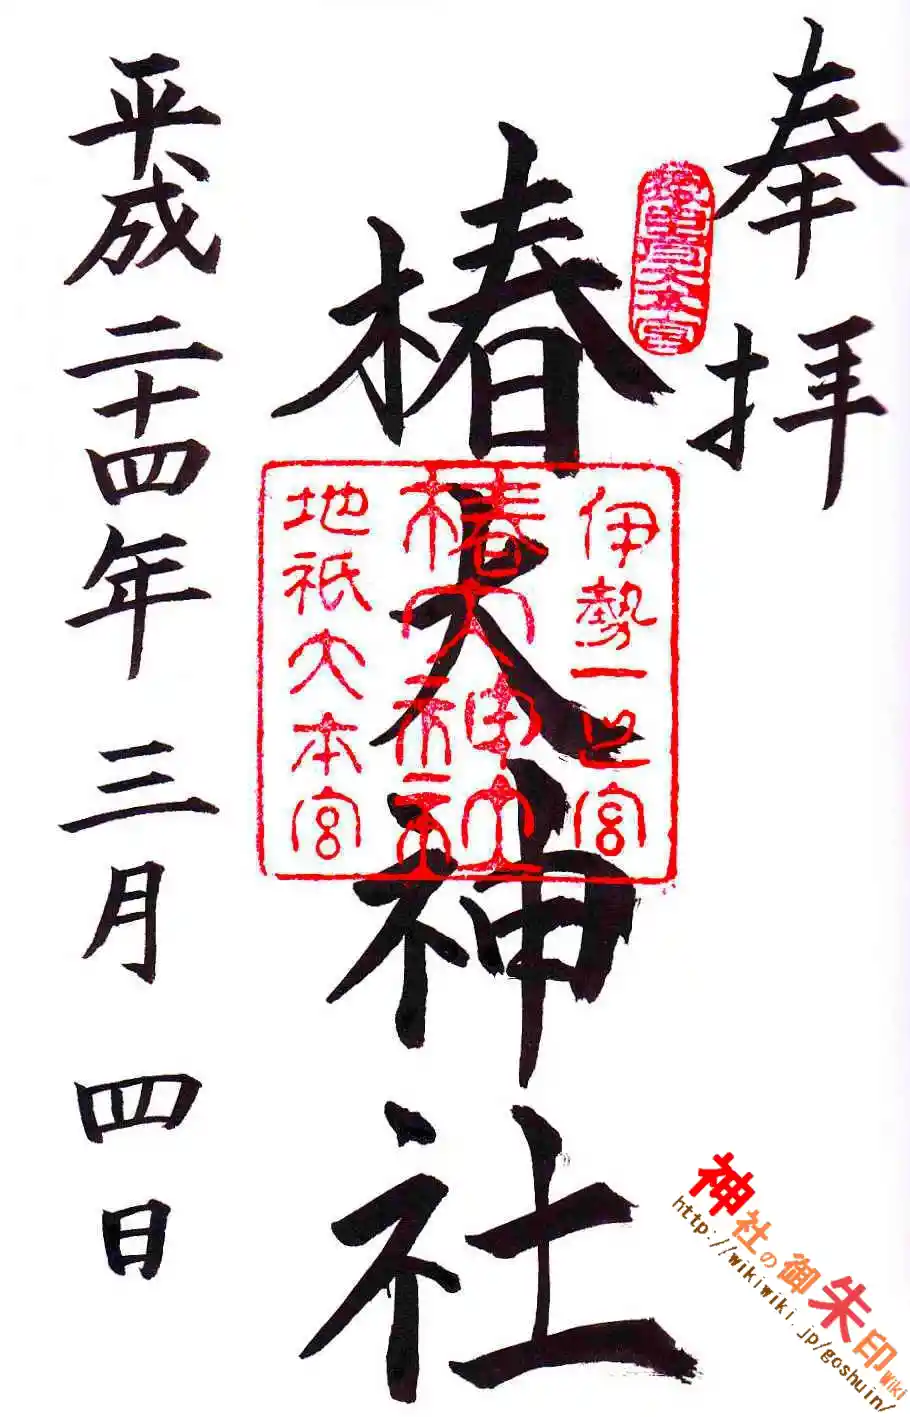 奉拝
椿大神社
伊勢一之宮
椿大神社
地祇大本宮
平成二十四年 三月 四日
神社の御朱印Wiki
http://wikiwiki.jp/goshuin/